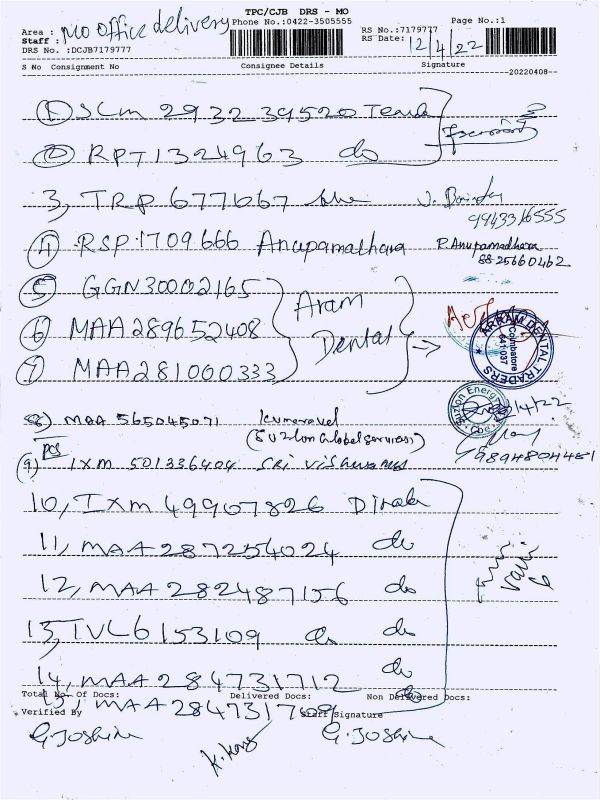 TPC/CJB DRS - MO
Area : MO office delivery Phone No.:0422-3505555 RS No.:7179777 Page No.:1
Staff : RS Date: 12/4/22
DRS No. :DCJB7179777
S No Consignment No Consignee Details Signature
20220408
1 SCM 293239520
2 RPT1324963 do
3, TRP 677067
99433/6555
4 RSP1709666 Anupamadhara P. Anupamadhara
88-25660462
5 GGN30002165
6 MAA289652408 Aram
Dental
7 MAA281000333
ARRAM DENTAL TRADERS
Coimbatore
641 037
8) MAA 565045071 Kumaravel
(Suzlon Global services)
Suzlon Energy
Cbe
/4/22
pcs
(9) IXM 501336404 SRI Vishwanas
9894804481
10, IXM 49907826
11, MAA 287254024 do
12, MAA 282487156 do
13, IVL6153109 do do
14, MAA 284731712 do
Total No. Of Docs: Delivered Docs: Non Delivered Docs:
15, MAA 284731709 do
Verified By Staff Signature